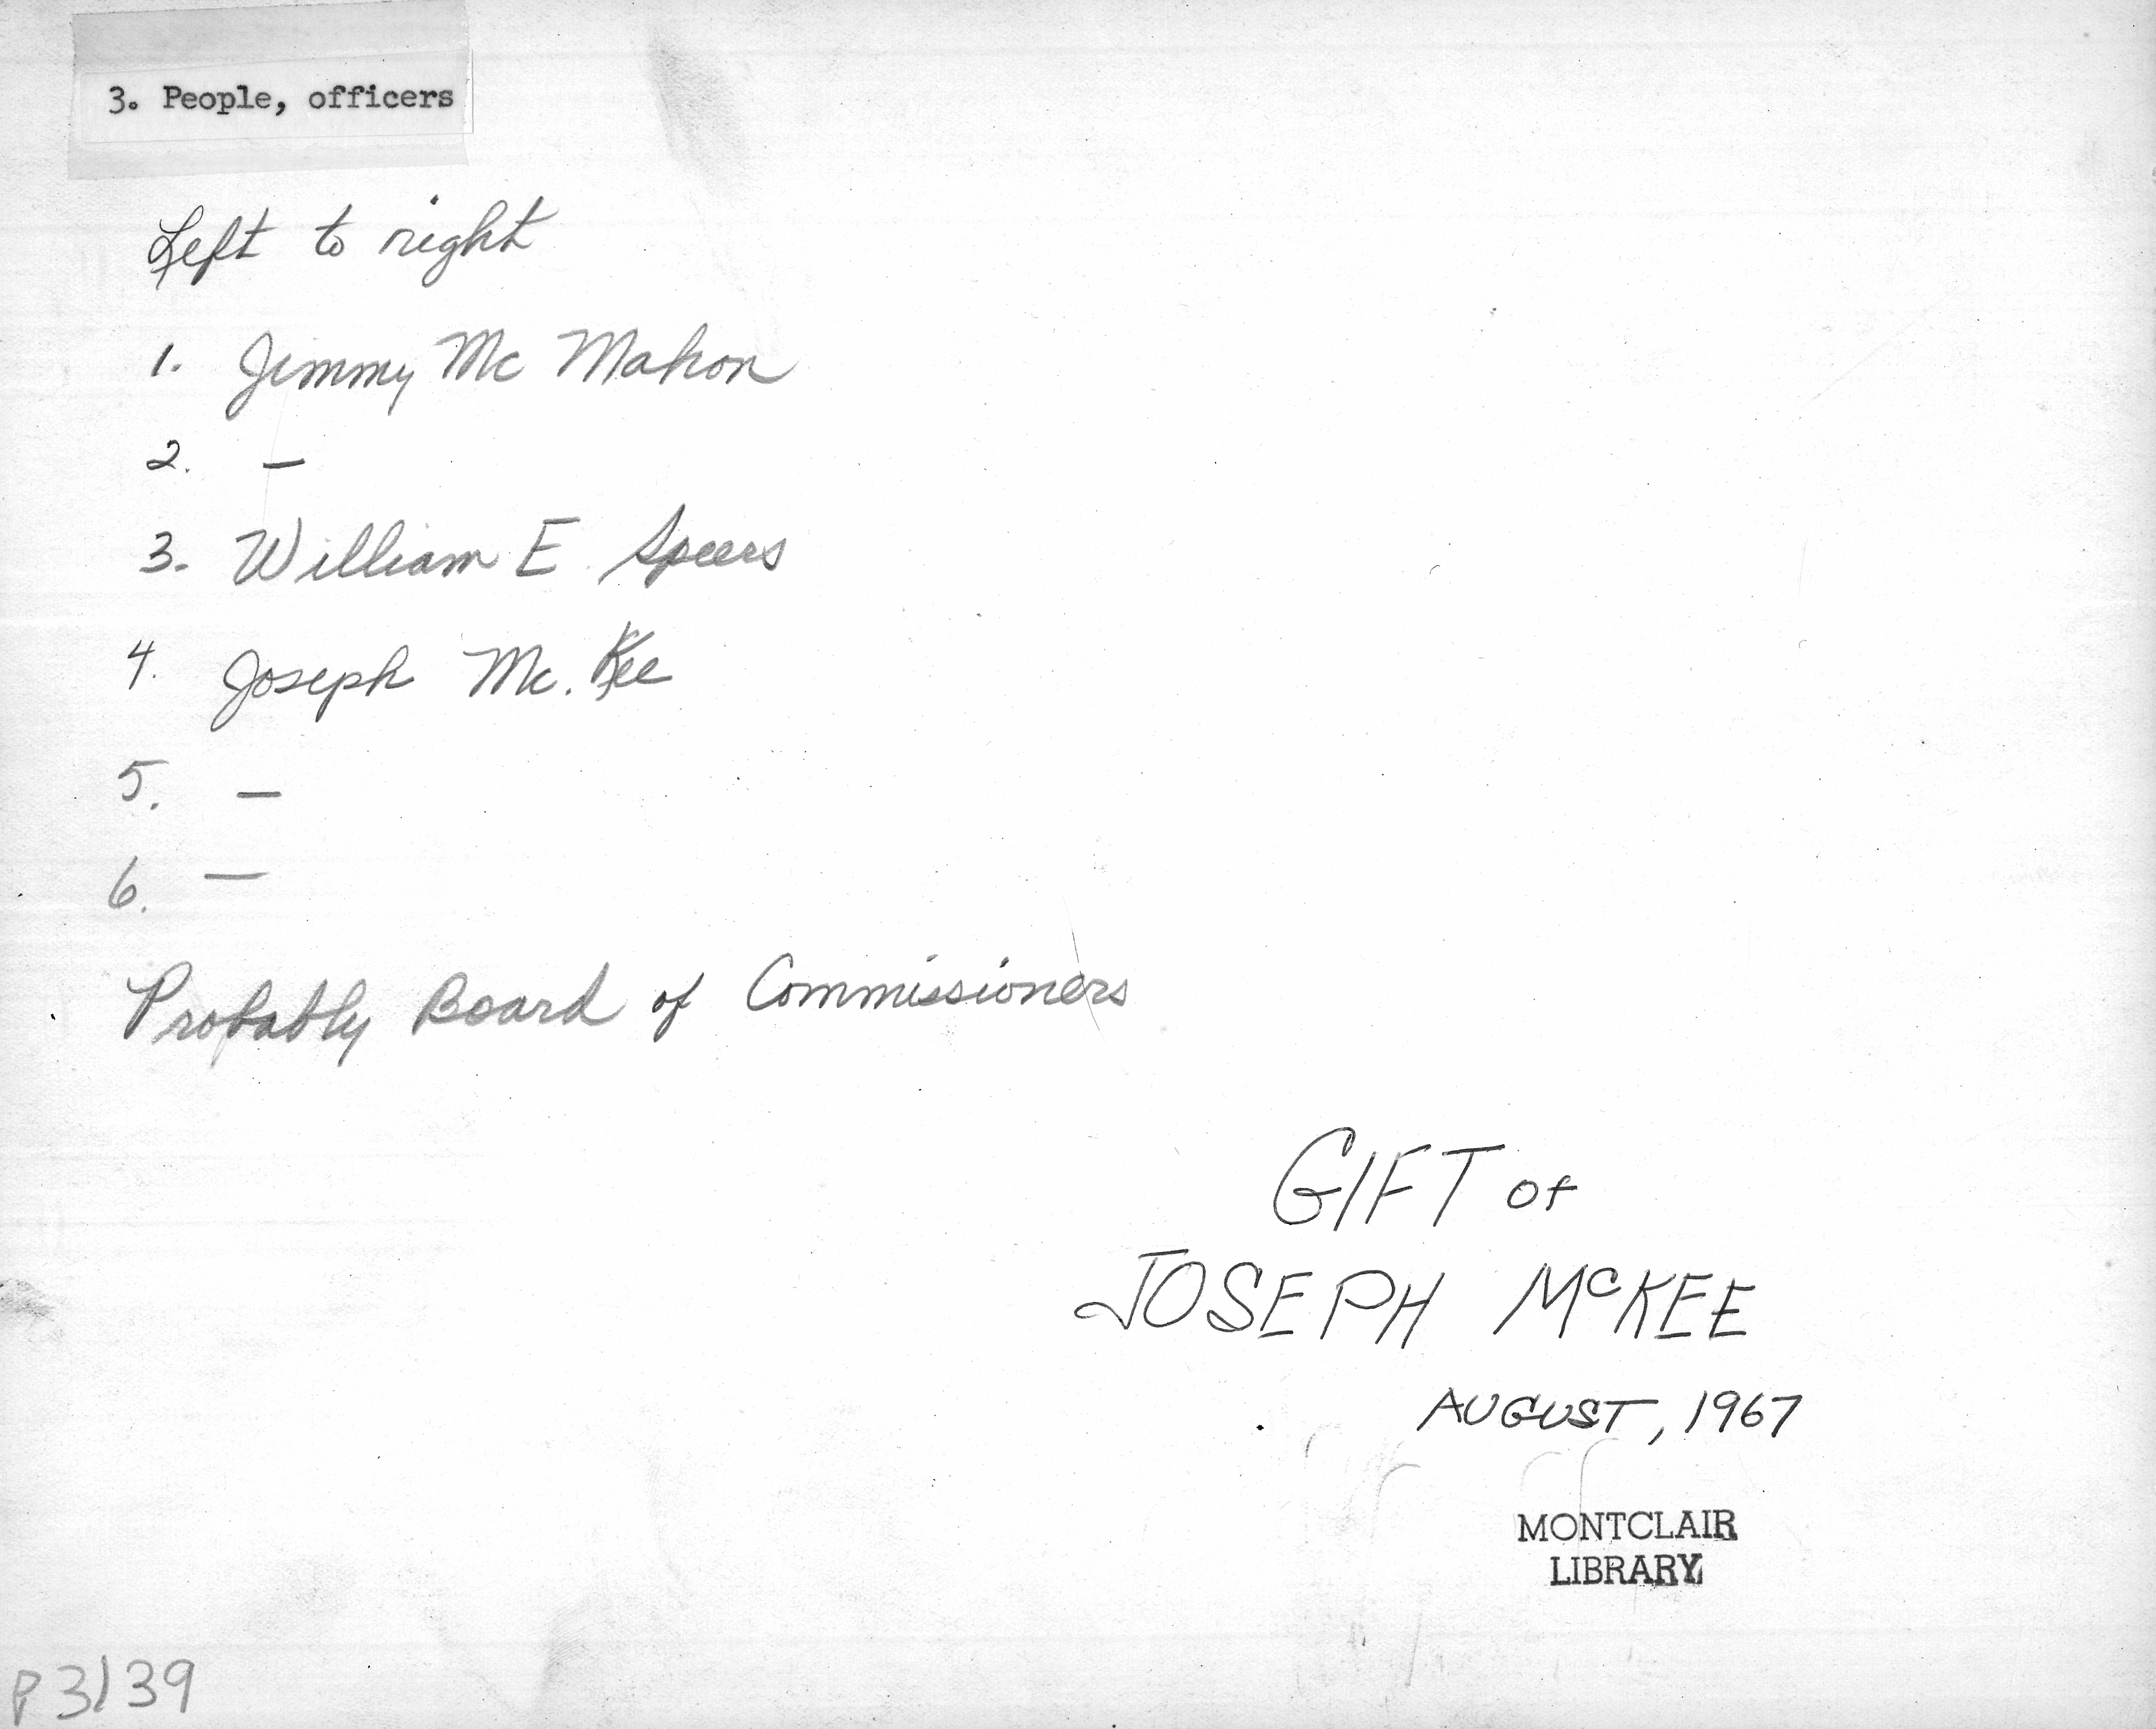 3. People, officers
Left to right
1. Jimmy Mc Mahon
2. —
3. William E. Speers
4. Joseph Mc. Kee
5. —
6. —
Probably Board of Commissioners
GIFT of
JOSEPH McKEE
AUGUST, 1967
MONTCLAIR
LIBRARY
P3/39